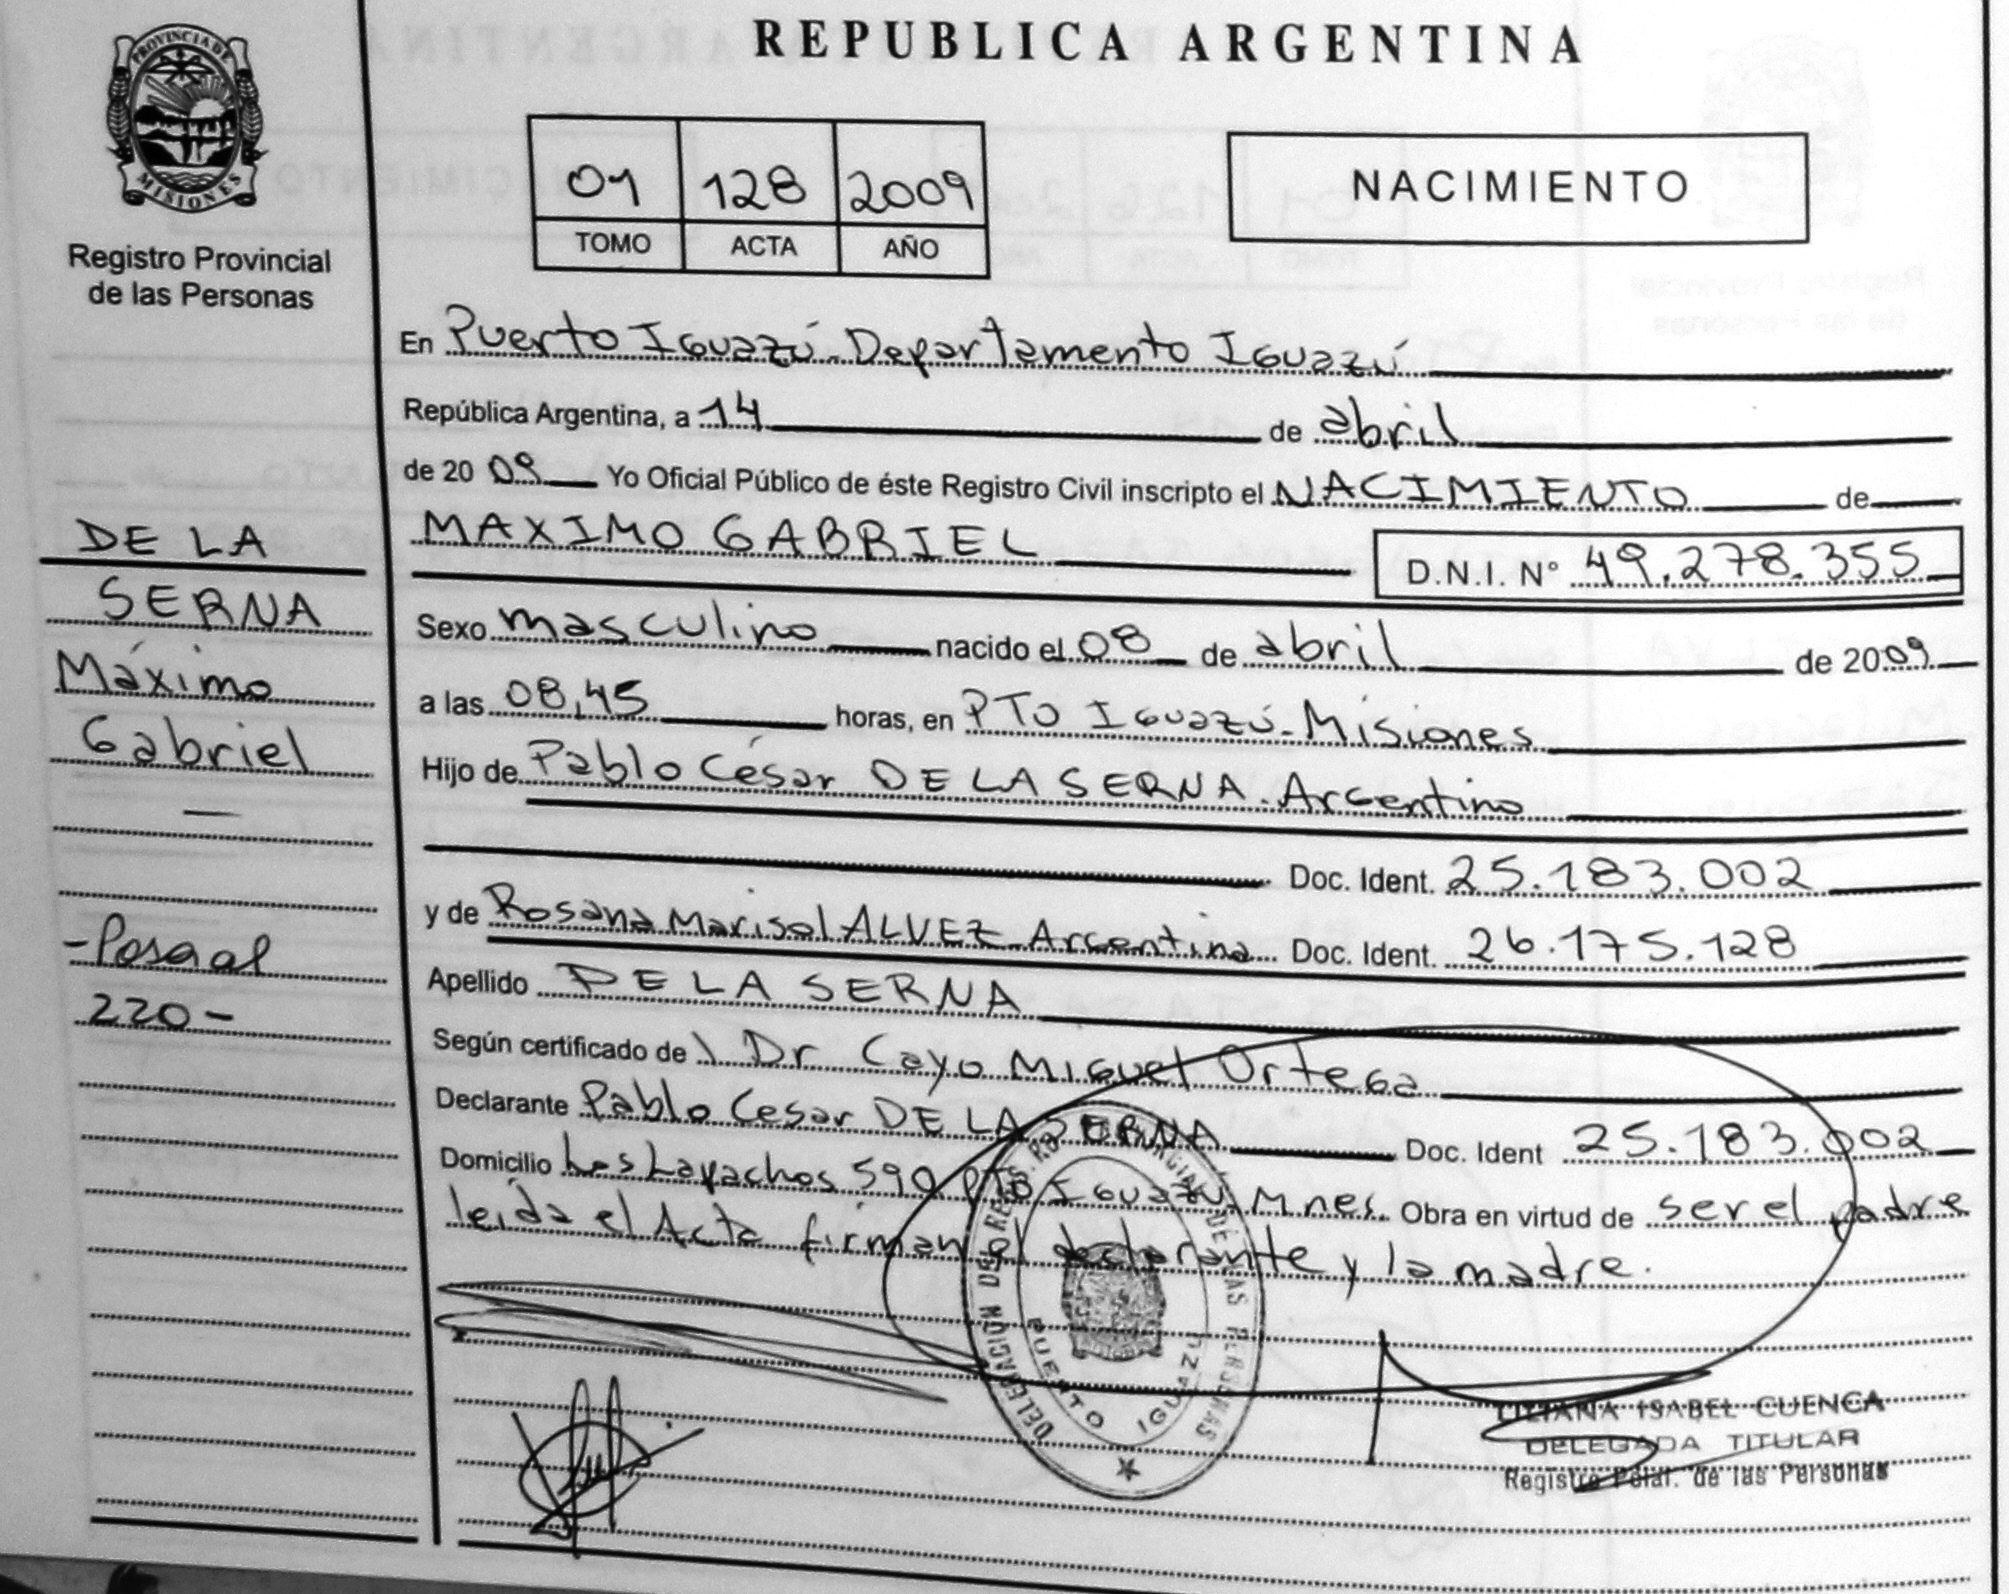 REPUBLICA ARGENTINA
PROVINCIA DE
MISIONES
Registro Provincial
de las Personas
01 128 2009
TOMO ACTA AÑO
NACIMIENTO
En Puerto Iguazú - Departamento Iguazú
República Argentina, a 14 de abril
de 20 09 Yo Oficial Público de éste Registro Civil inscripto el NACIMIENTO de
MAXIMO GABRIEL
D.N.I. N° 49.278.355
Sexo masculino nacido el 08 de abril de 2009
a las 08,45 horas, en PTO Iguazú - Misiones
Hijo de Pablo César DE LA SERNA - Argentino
Doc. Ident. 25.183.002
y de Rosana Marisol ALVEZ - Argentina Doc. Ident. 26.175.128
Apellido DE LA SERNA
Según certificado del Dr Cayo Miguel Ortega
Declarante Pablo Cesar DE LA SERNA Doc. Ident 25.183.002
Domicilio Los Lapachos 590 PTO Iguazú Mnes. Obra en virtud de ser el padre
leída el Acta firman el declarante y la madre.
DE LA
SERNA
Máximo
Gabriel
—
- Pasa al
220 -
DELEGACION DEL REG. PROVINCIAL DE LAS PERSONAS
PUERTO IGUAZU
LILIANA ISABEL CUENCA
DELEGADA TITULAR
Registro Pcial. de las Personas